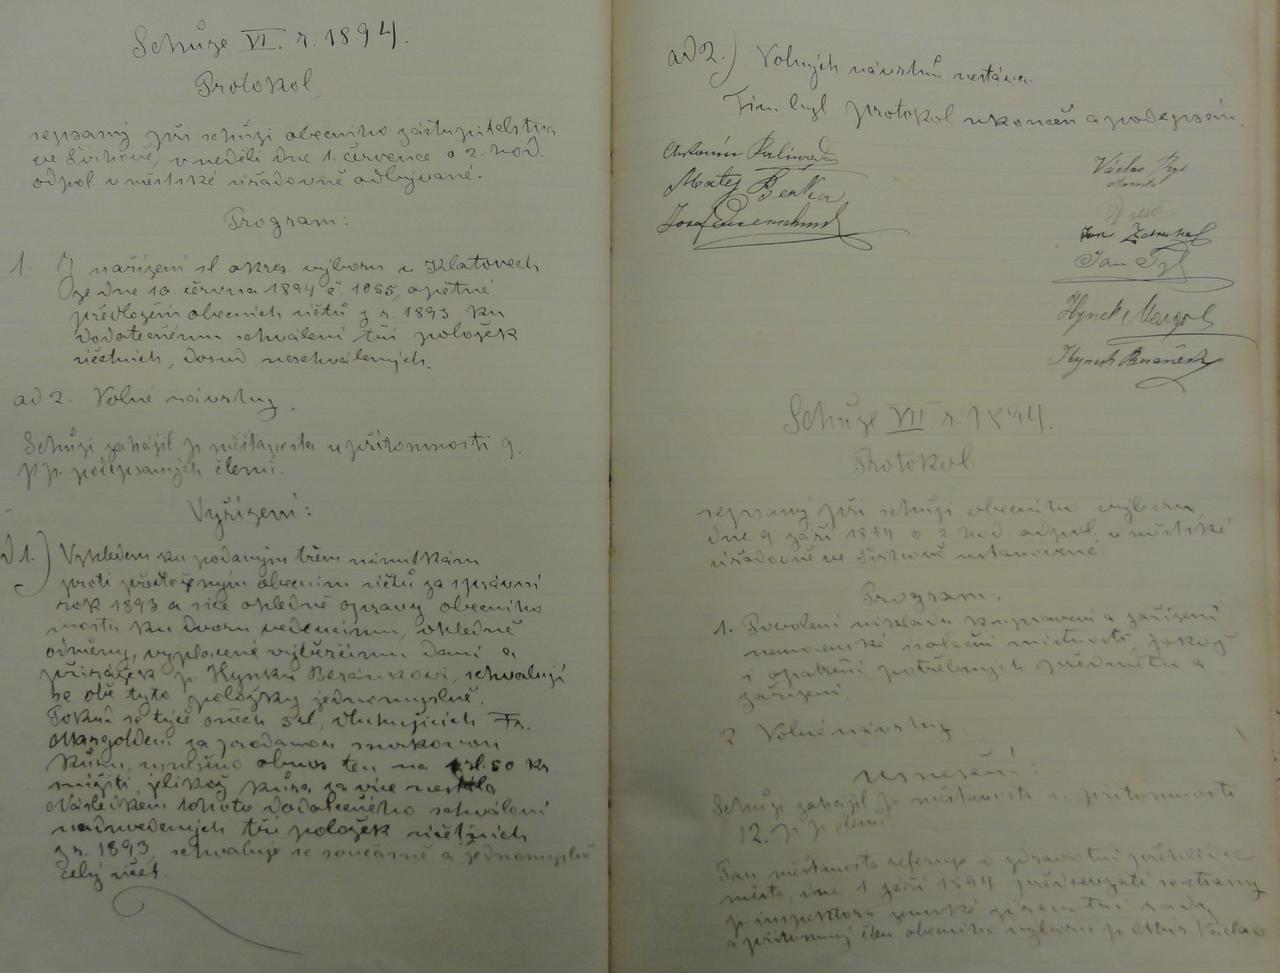 Schůze VI. r. 1894.
Protokol
sepsaný při schůzi obecního zastupitelstva
ve Švihově, v neděli dne 1. července o 2. hod.
odpol. v městské úřadovně odbývané.
Program:
1. Z nařízení sl. okres. výboru v Klatovech
ze dne 10. června 1894 č. 1055, opětné
předložení obecních účtů z r. 1893 ku
dodatečnému schválení tří položek
účetních, dosud neschválených.
ad 2. Volné návrhy.
Schůzi zahájil p. městanosta u přítomnosti 9.
p.p. podepsaných členů.
Vyřízení:
ad 1.) Vzhledem ku podaným třem námitkám
proti předloženým obecním účtů za správní
rok 1893 a sice ohledně opravy obecního
mostu ku dvoru vedoucímu, ohledně
odměny, vyplacené výběrčímu daní a
přirážek p. Hynku Beránkovi, schvalují
se obě tyto položky jednomyslně.
Pokud se týče oněch 3 zl, dluhujících Fr.
Margoldem za prodanou smrkovou
kůru, usnešeno obnos ten na zl. 50 kr.
snížiti, jelikož kůra za více nestála
Následkem tohoto dodatečného schválení
naduvedených tří položek účetních
z r. 1893, schvaluje se současně a jednomyslně
celý účet.
ad 2.) Volných návrhů nestáva.
Tím byl protokol ukončen a podepsán.
Antonín
Václav
Matěj Benka
Josef
Jan
Jan
Hynek Margold
Hynek Beránek
Schůze VII r. 1894.
Protokol
sepsaný při schůzi obecního výboru
dne 9 září 1894 o 2 hod. odpol. v městské
úřadovně ve Švihově ustanovené.
Program.
1. Povolení nákladu k upravení a zařízení
nemocenské isolační místnosti, jakož
i opatření potřebných předmětů a
zařízení.
2 Volné návrhy.
Usnešení:
Schůzi zahájil p. městanosta u přítomnosti
12. p.p. členů.
Pan městanosta referuje o zdravotní přehlídce
města, dne 1 září 1894 předsevzaté se strany
p. inspektora zemské zdravotní rady
a přítomný člen obecního výboru p. Václav